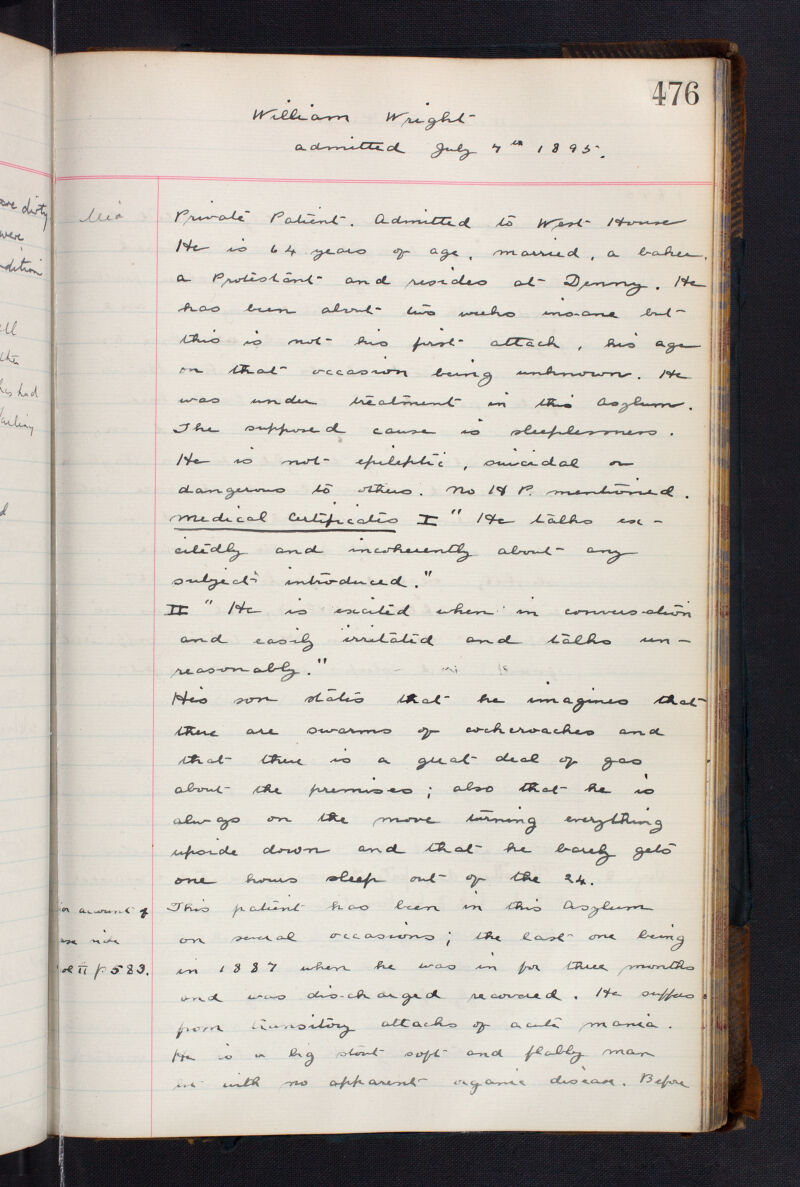 476
William Wright
admitted July 7th 1895.
Private Patient. Admitted to West House
He is 64 years of age, married, a baker,
a Protestant and resides at Denny. He
has been about two weeks insane but
this is not his first attack, his age
on that occasion being unknown. He
was under treatment in this Asylum.
The supposed cause is sleeplessness.
He is not epileptic, suicidal or
dangerous to others. No H P. mentioned.
Medical Certificates I "He talks ex-
citedly and incoherently about any
subject introduced."
II "He is excited when in conversation
and easily irritated and talks un-
reasonably."
His son states that he imagines that
there are swarms of cockroaches and
that there is a great deal of gas
about the premises; also that he is
always on the move turning everything
upside down and that he barely gets
one hours sleep out of the 24.
for account of
case vide
Vol II p. 583.
This patient has been in this Asylum
on several occasions; the last one being
in 1887 when he was in for three months
and was discharged recovered. He suffers
from transitory attacks of acute mania.
He is a big stout soft and flabby man
with no apparent organic disease. Before
are dirty
were